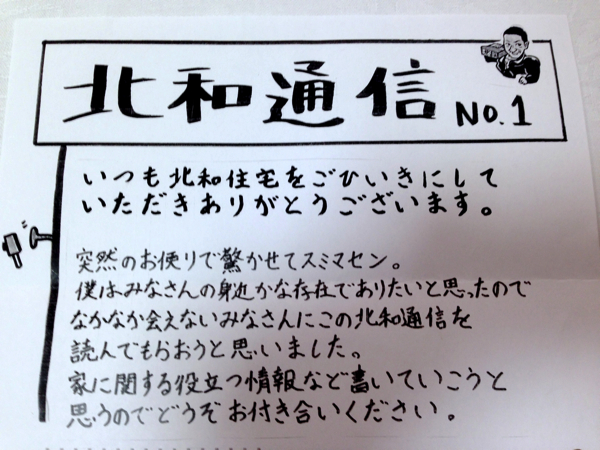 北和通信 No.1
いつも北和住宅をごひいきにして
いただきありがとうございます。
突然のお便りで驚かせてスミマセン。
僕はみなさんの身近かな存在でありたいと思ったので
なかなか会えないみなさんにこの北和通信を
読んでもらおうと思いました。
家に関する役立つ情報など書いていこうと
思うのでどうぞお付き合いください。